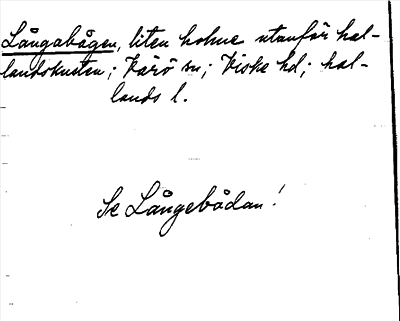 Långabågen, liten holme utanför hal-
landskusten; Värö sn; Viske hd; hal-
lands l.
Se Långebådan!